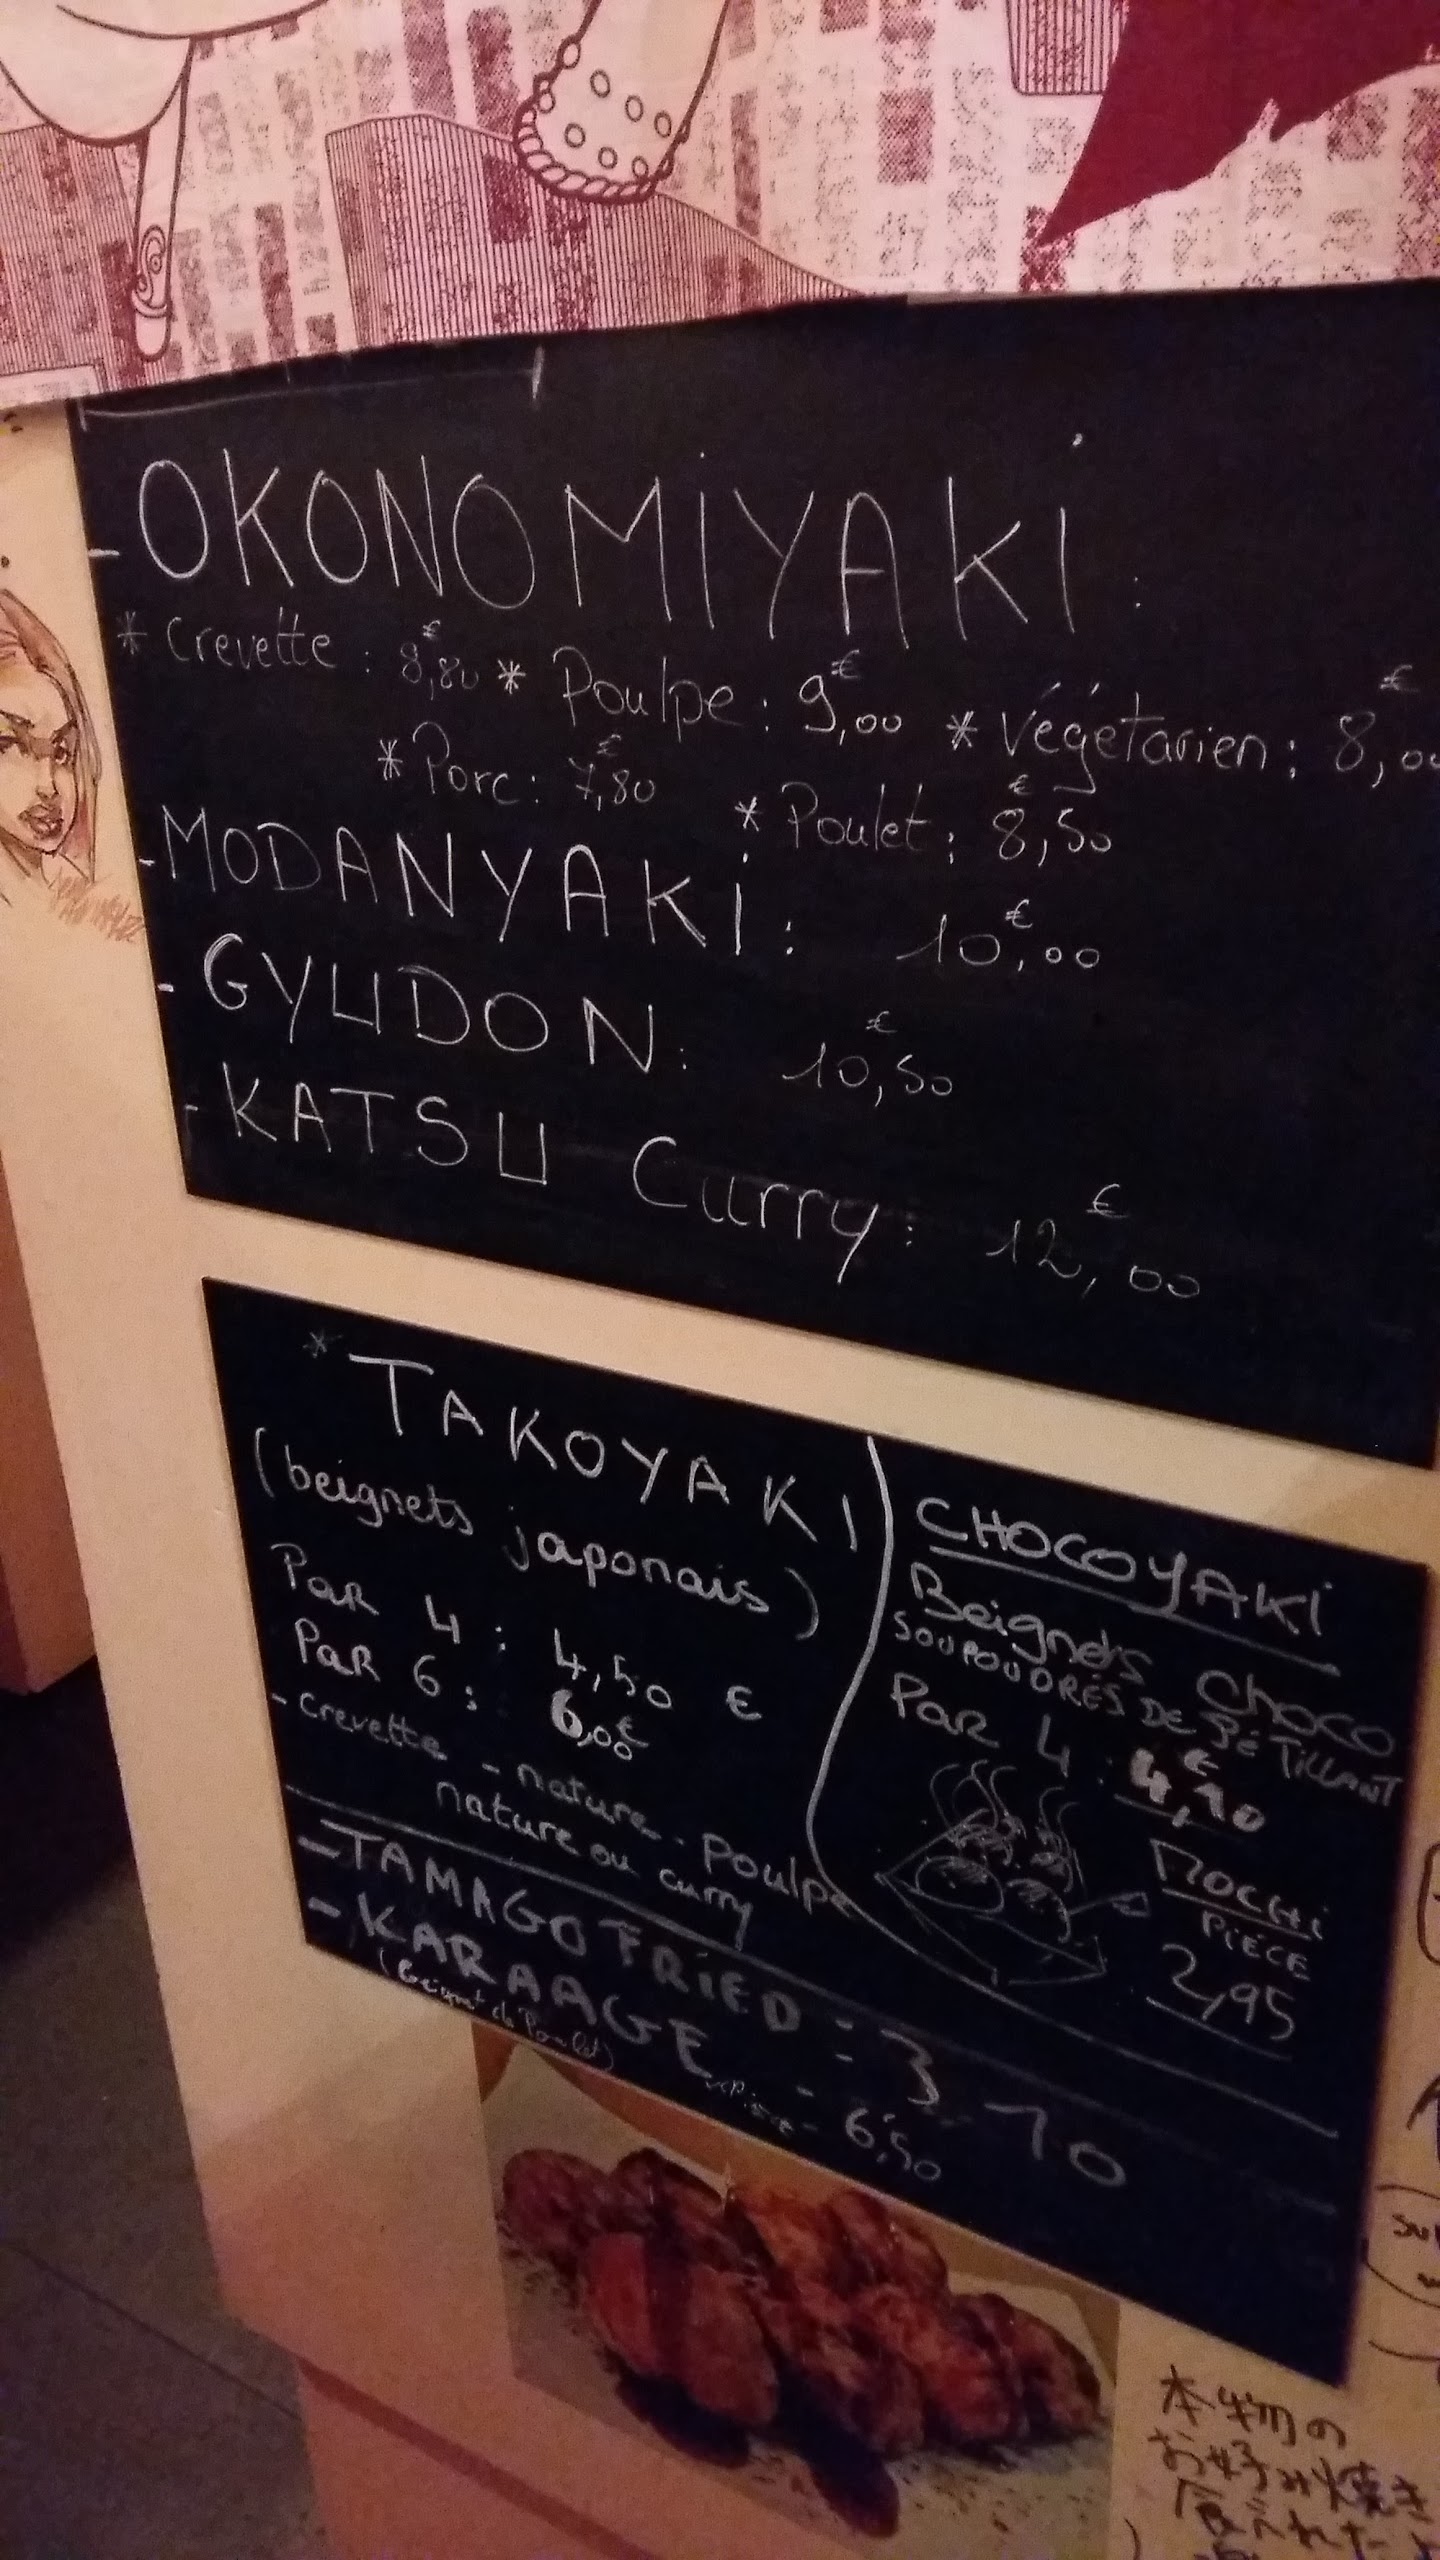 - OKONOMiYAKi :
* Crevette : 8,80 € * Poulpe : 9,00 € * Végétarien : 8,00 €
* Porc : 7,80 € * Poulet : 8,50 €
- MODANYAKi : 10,00 €
- GYUDON : 10,50 €
- KATSU Curry : 12,00 €
* TAKOYAKI
(beignets japonais)
PAR 4 : 4,50 €
PAR 6 : 6,00 €
- crevette - nature - Poulpe
nature ou curry
CHOCOYAKi
Beignets Choco
SOUPOUDRÉS DE PÉTILLANT
PAR 4 :
MOCHi
PiÈCE
2,95
- TAMAGO FRiED : 3.10
- KARAAGE - 6,50
(Beignet de Poulet)
本物の
お好み焼き
食べれた